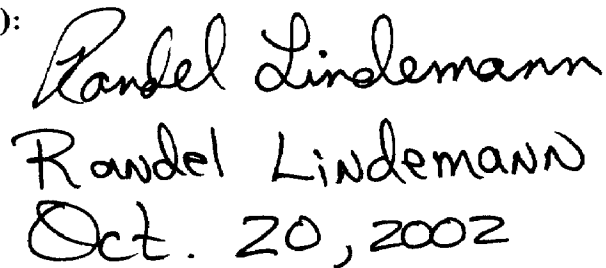 ):
Randel Lindemann
Randel Lindemann
Oct. 20, 2002